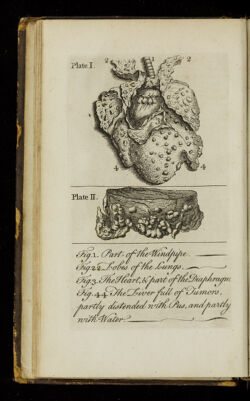 Plate I.
2 2
4 4
Plate II.
Fig. 1. Part of the Windpipe.
Fig. 2 2. Lobes of the Lungs.
Fig. 3. The Heart, & part of the Diaphragm.
Fig. 4 4. The Liver full of Tumors,
partly distended with Pus, and partly
with Water.